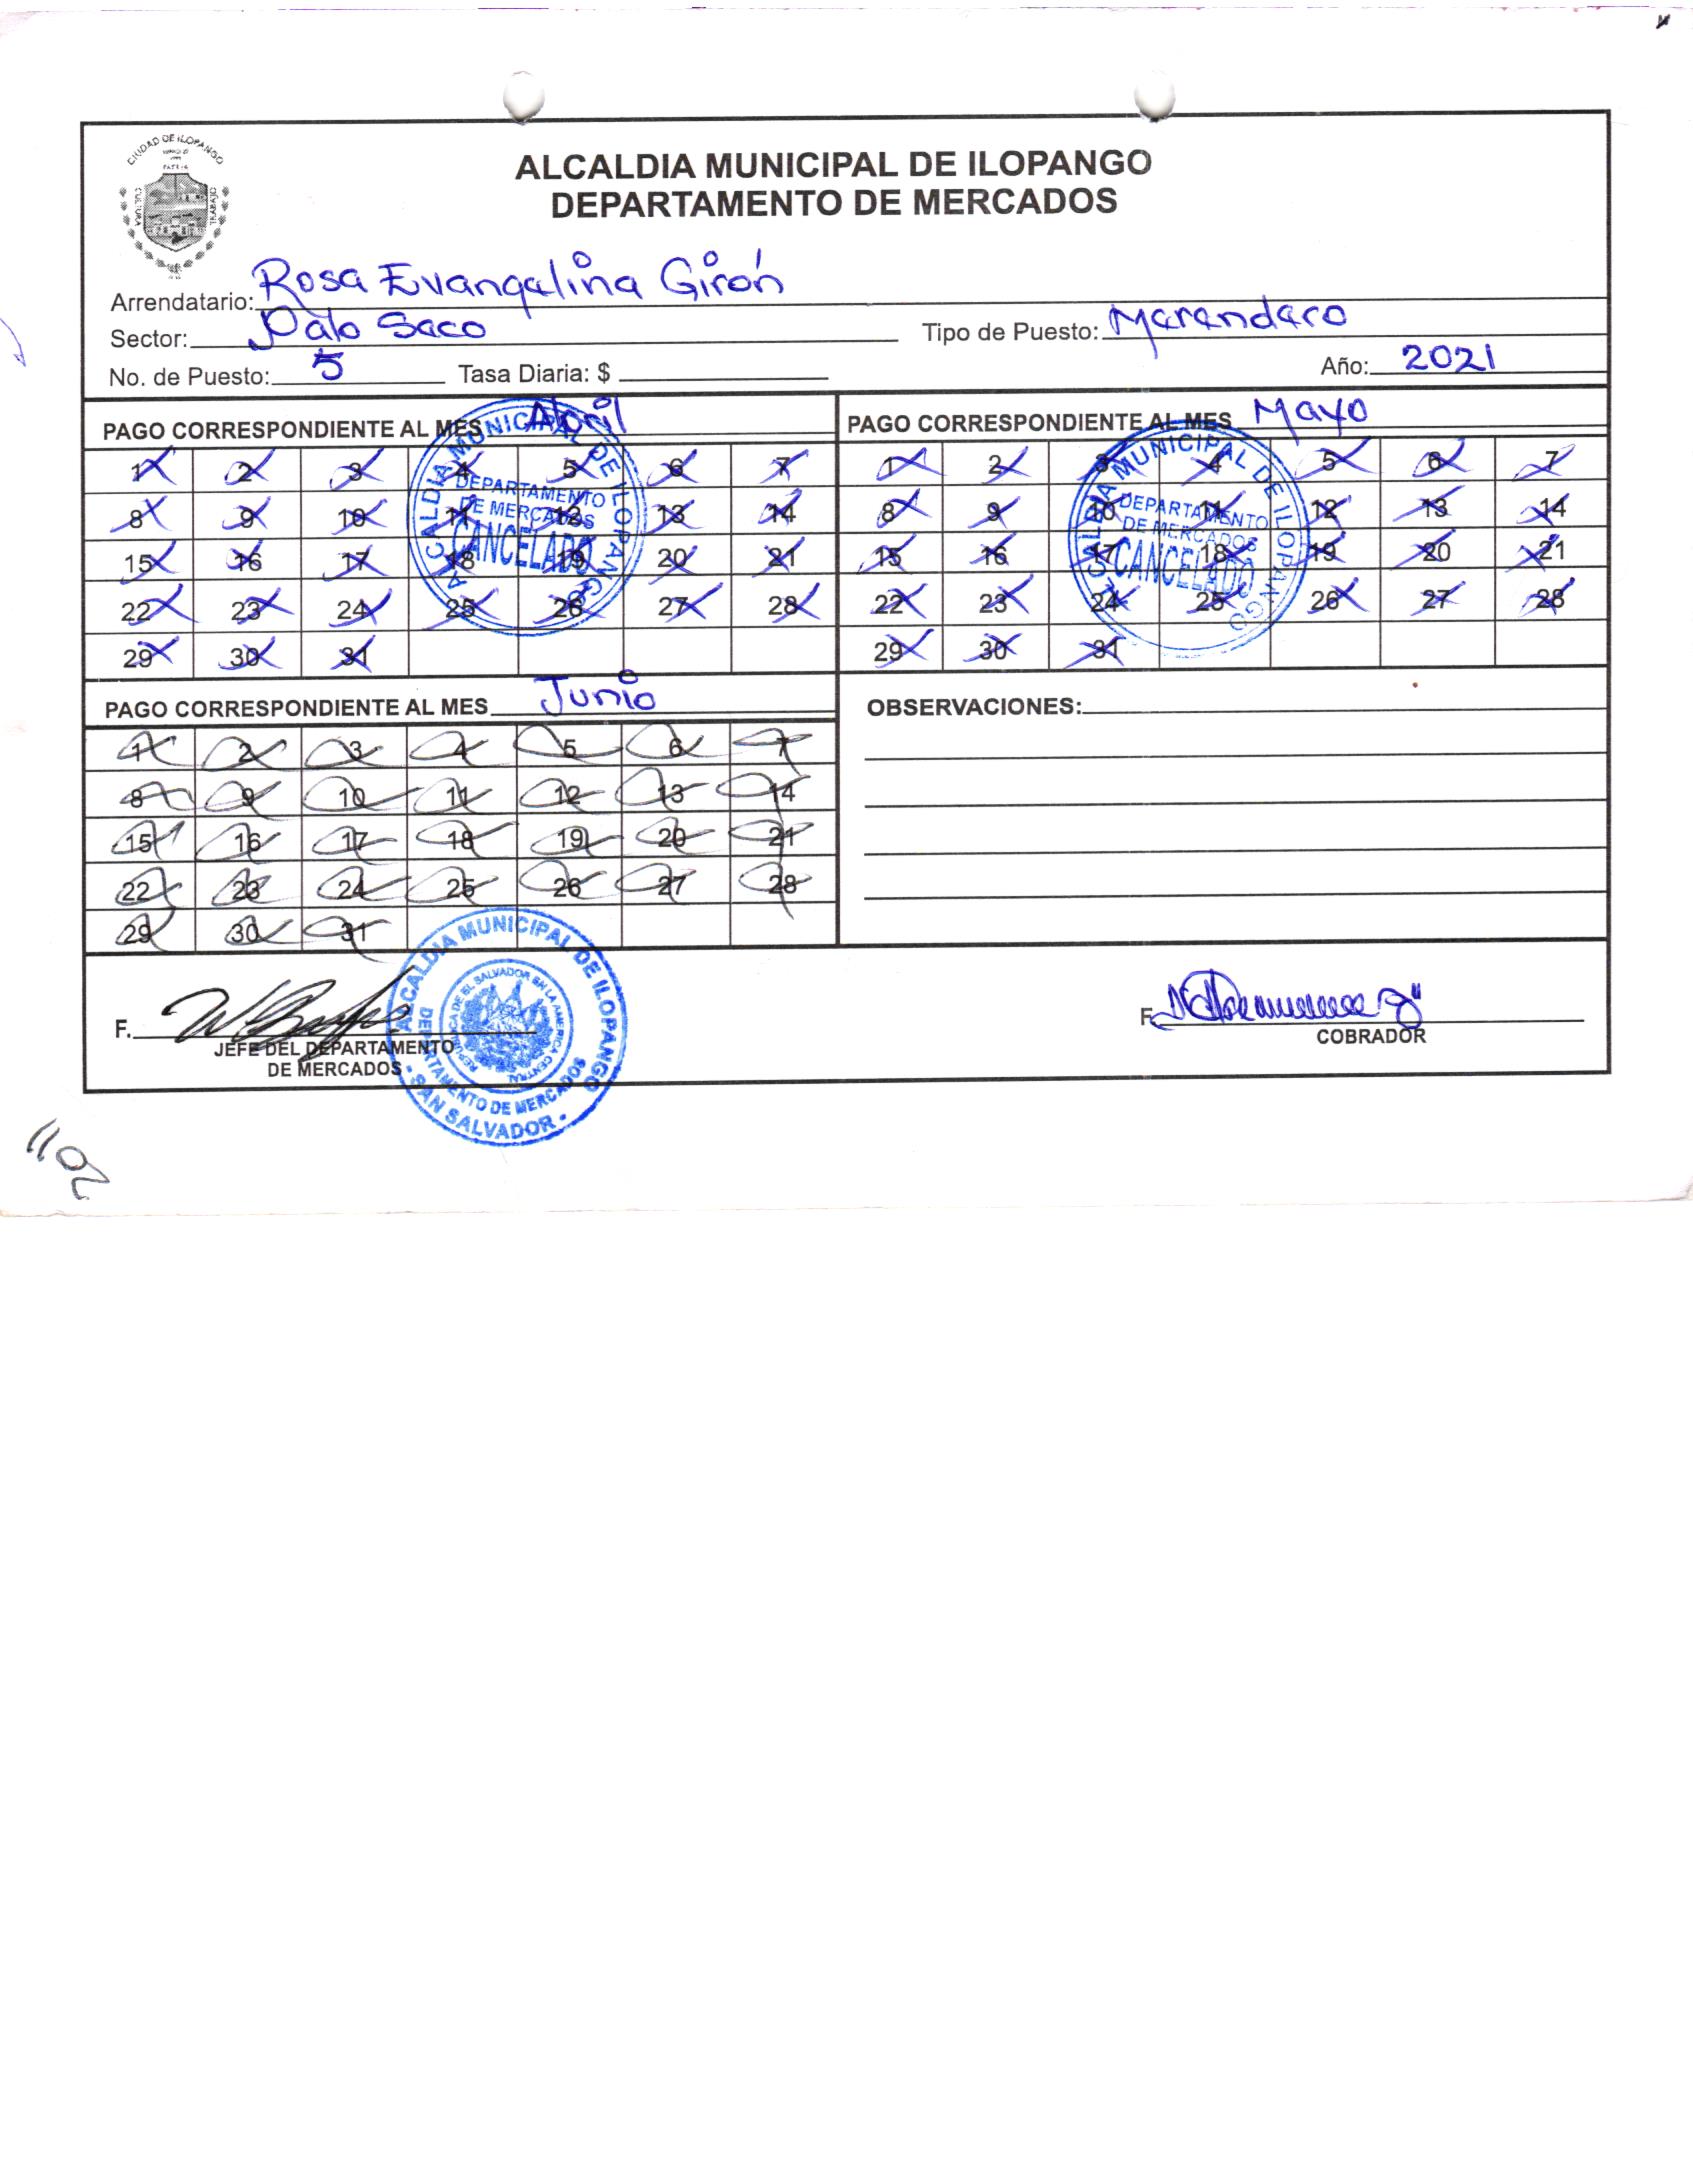 CIUDAD DE ILOPANGO
CULTURA
TRABAJO
ALCALDIA MUNICIPAL DE ILOPANGO
DEPARTAMENTO DE MERCADOS
Arrendatario: Rosa Evangelina Girón
Sector: Palo Seco Tipo de Puesto: Merendero
No. de Puesto: 5 Tasa Diaria: $ Año: 2021
PAGO CORRESPONDIENTE AL MES Abril
1 2 3 4 5 6 7
8 9 10 11 12 13 14
15 16 17 18 19 20 21
22 23 24 25 26 27 28
29 30 31
ALCALDIA MUNICIPAL DE ILOPANGO
DEPARTAMENTO
DE MERCADOS
CANCELADO
PAGO CORRESPONDIENTE AL MES Mayo
1 2 3 4 5 6 7
8 9 10 11 12 13 14
15 16 17 18 19 20 21
22 23 24 25 26 27 28
29 30 31
ALCALDIA MUNICIPAL DE ILOPANGO
DEPARTAMENTO
DE MERCADOS
CANCELADO
PAGO CORRESPONDIENTE AL MES Junio
1 2 3 4 5 6 7
8 9 10 11 12 13 14
15 16 17 18 19 20 21
22 23 24 25 26 27 28
29 30 31
OBSERVACIONES:
F.
JEFE DEL DEPARTAMENTO
DE MERCADOS
ALCALDIA MUNICIPAL DE ILOPANGO
DEPARTAMENTO DE MERCADOS
- SAN SALVADOR -
REPUBLICA DE EL SALVADOR EN LA AMERICA CENTRAL
F.
COBRADOR